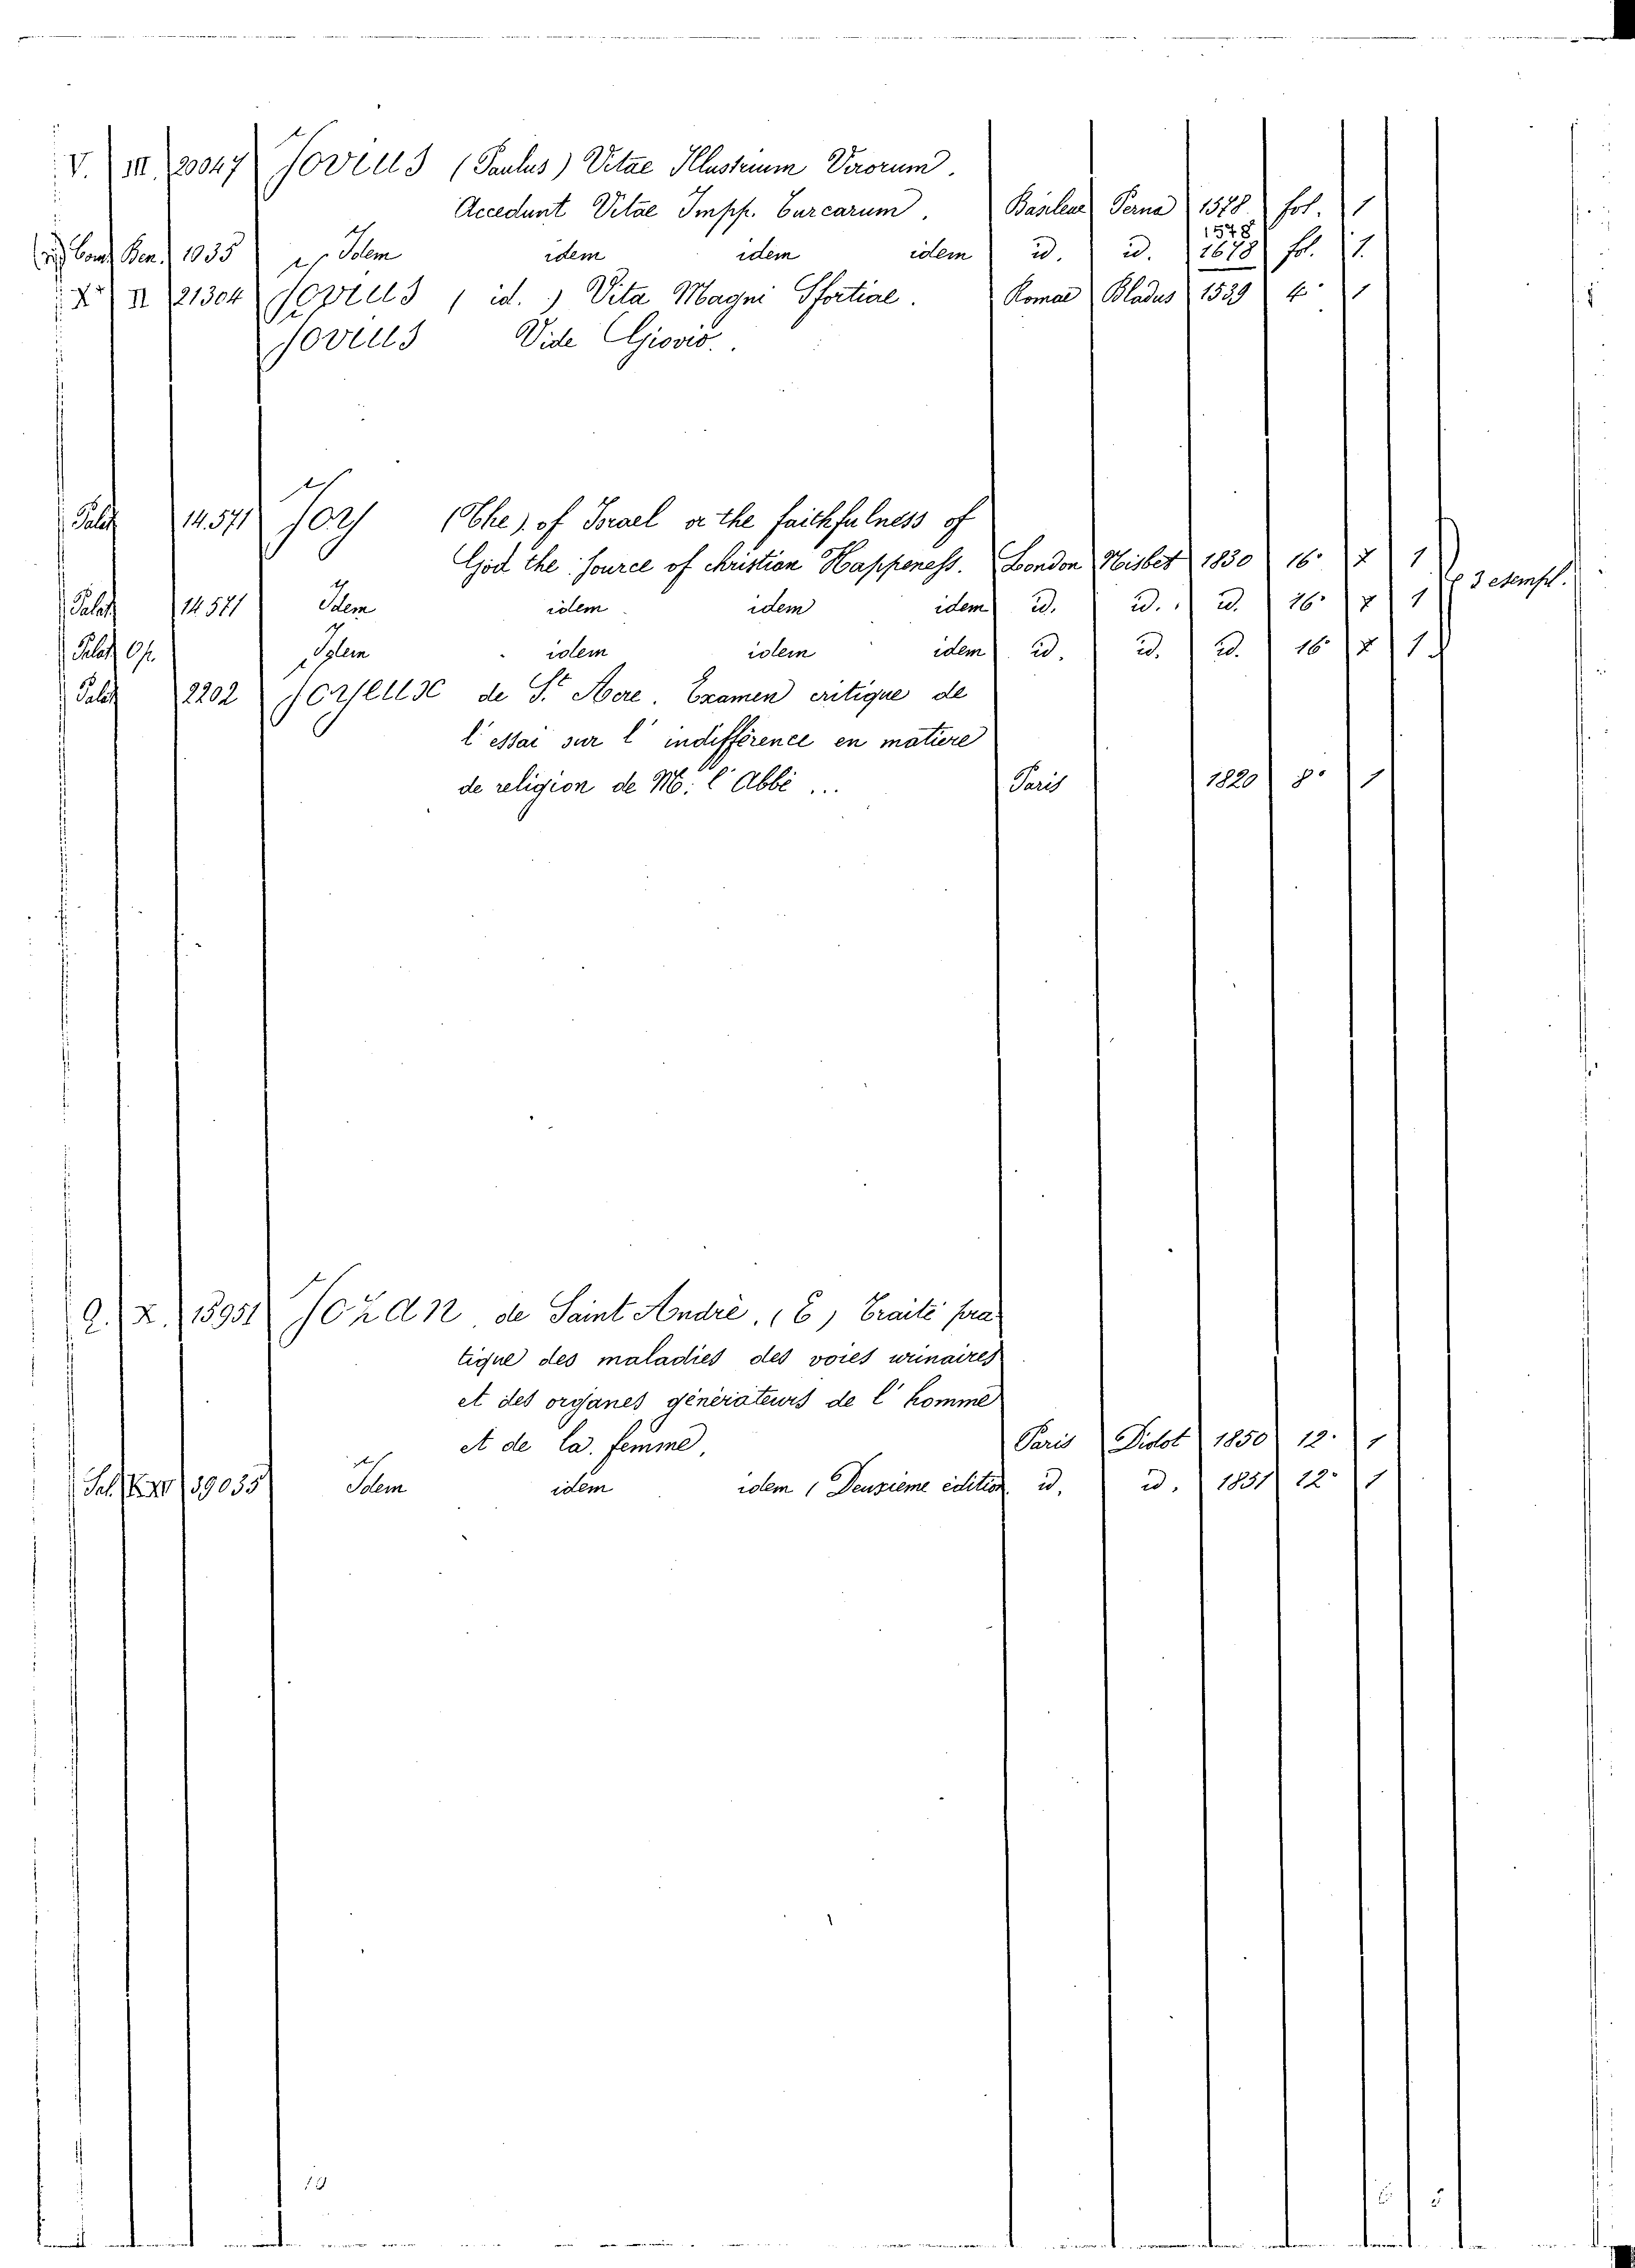 V. III. 20047 Jovius (Paulus) Vitae Illustrium Virorum.
Accedunt Vitae Impp. Turcarum. Basileae Perna 1578 fol. 1
1578
Ben. 1035 Idem idem idem idem id. id. 1678 fol. 1.
X II 21304 Jovius (id.) Vita Magni Sfortiae. Romae Bladus 1539 4° 1
Jovius Vide Giovio.
Palat 14.571 Joy (The) of Israel or the faithfulness of
God the source of christian Happeness. London Nisbet 1830 16° 1
3 esempl.
Palat 14.571 Idem idem idem idem id. id. id. 16° 1
Palat Op. Idem idem idem idem id. id. id. 16° 1
Palat 2202 Joyeuse de St. Acre. Examen critique de
l'essai sur l'indifférence en matiere
de religion de M. l'Abbé ... Paris 1820 8° 1
Q. X. 15951 Jozan de Saint André, (E) Traité pra
tique des maladies des voies urinaires
et des organes générateurs de l'homme
et de la femme, Paris Didot 1850 12° 1
39035 Idem idem idem, Deuxieme edition id. id. 1851 12° 1